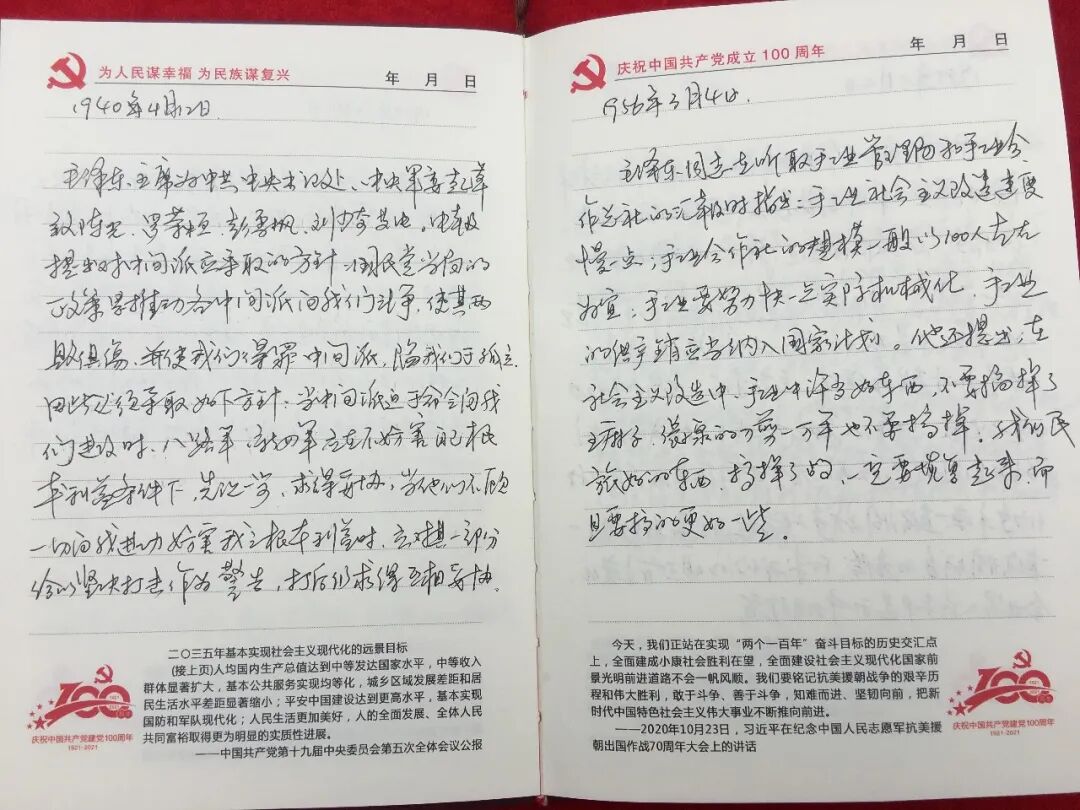 为人民谋幸福 为民族谋复兴
年 月 日
1940年4月2日.
毛泽东主席为中共中央书记处、中央军委起草
致陈光、罗荣桓、彭雪枫、刘少奇电。电报
提出对中间派应采取的方针:国民党当局的
政策是推动各中间派向我们斗争,使其两
败俱伤,并使我们得罪中间派,陷我们于孤立.
因此必须采取如下方针:当中间派迫于命令向我
们进攻时,八路军、新四军应在不妨害自己根
本利益条件下,先让一步,求得妥协,当他们不顾
一切向我进攻妨害我之根本利益时,应对其一部分
给以坚决打击作为警告,打后仍求得互相妥协.
二〇三五年基本实现社会主义现代化的远景目标
(接上页)人均国内生产总值达到中等发达国家水平,中等收入
群体显著扩大,基本公共服务实现均等化,城乡区域发展差距和居
民生活水平差距显著缩小;平安中国建设达到更高水平,基本实现
国防和军队现代化;人民生活更加美好,人的全面发展、全体人民
共同富裕取得更为明显的实质性进展。
——中国共产党第十九届中央委员会第五次全体会议公报
100
庆祝中国共产党建党100周年
1921-2021
庆祝中国共产党成立100周年
年 月 日
1956年3月4日.
毛泽东同志在听取手工业管理局和手工业合
作总社的汇报时指出:手工业社会主义改造速度
慢一点;手工业合作社的规模一般以100人左右
为宜;手工业要努力快一点实际机械化,手工业
的供产销应当纳入国家计划。他还提出,在
社会主义改造中,手工业中许多好东西,不要搞掉了
王麻子、张小泉的刀剪一万年也不要搞掉。我们民
族好的东西,搞掉了的,一定要恢复起来,而
且要搞的更好一些。
今天,我们正站在实现“两个一百年”奋斗目标的历史交汇点
上,全面建成小康社会胜利在望,全面建设社会主义现代化国家前
景光明前进道路不会一帆风顺。我们要铭记抗美援朝战争的艰辛历
程和伟大胜利,敢于斗争、善于斗争,知难而进、坚韧向前,把新
时代中国特色社会主义伟大事业不断推向前进。
——2020年10月23日,习近平在纪念中国人民志愿军抗美援
朝出国作战70周年大会上的讲话
100
庆祝中国共产党建党100周年
1921-2021